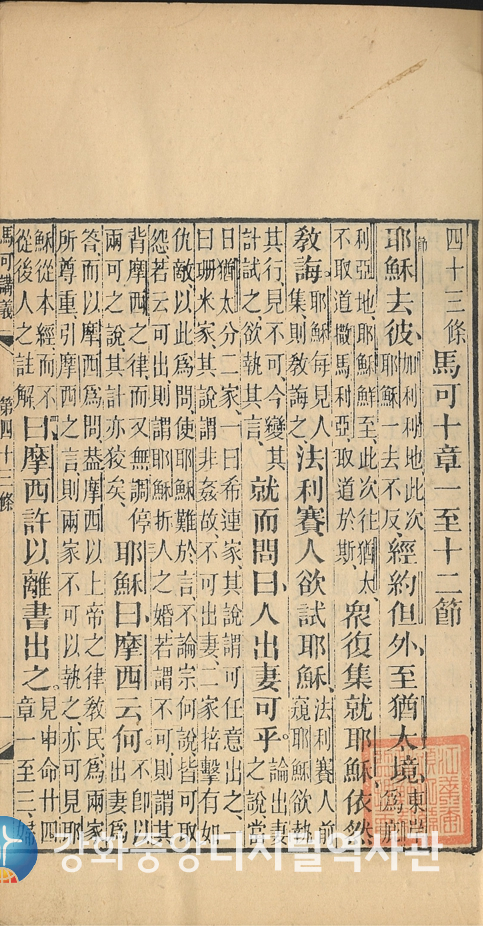 四十三條馬可十章一至十二節
耶穌去彼、加利利地此次耶穌一去不反、經約但外至猶太境、東岸爲
利亞地、耶穌鮮至、此次往猶太、不取道撒馬利亞、取道於斯衆復集就耶穌依然
教誨、耶穌每見人集則教誨之法利賽人欲試耶穌、法利賽人前窺耶穌欲執
其行、見不可、今變其計試之、欲執其言、就而問曰人出妻可乎。論出妻之說當
日猶太分二家、一曰希連家、其說謂可任意出之、
曰珊米家、其說謂非姦故、不可出妻、二家掊擊有如
仇敵、以此爲問、使耶穌難於言、不論宗何說、皆可取
怨、若云可出、則謂耶穌拆人之婚、若謂不可、則謂其
背摩西之律、而又無調停兩可之說、其計亦狡矣、耶穌曰摩西云何。不卽以出妻爲
答、而以摩西爲問、葢摩西以上帝之律教民、爲兩家
所尊重、引摩西之言、則兩家不可以執之、亦可見耶
穌從本經而不從後人之註解、曰摩西許以離書出之。見申命廿四章一至三、婦
馬可講義 第四十三條 一
강화중앙디지털역사관